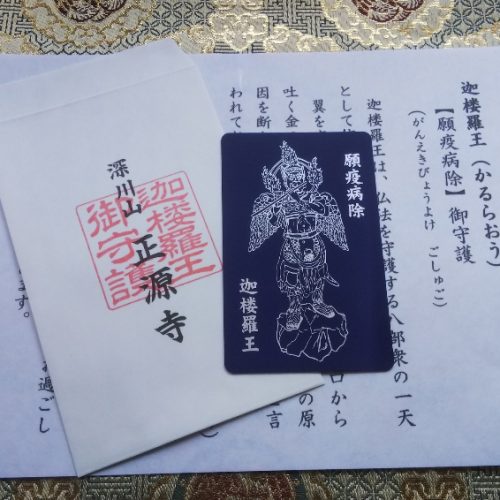 迦楼羅王（かるらおう）
【願疫病除】御守護
（がんえきびょうよけ　ごしゅご）
迦楼羅王は、仏法を守護する八部衆の一天
として
翼を
口から
吐く金
の原
因を断
言
われて
過ごし
ます。
願疫病除
迦楼羅王
深川山 正源寺
迦楼羅王
御守護